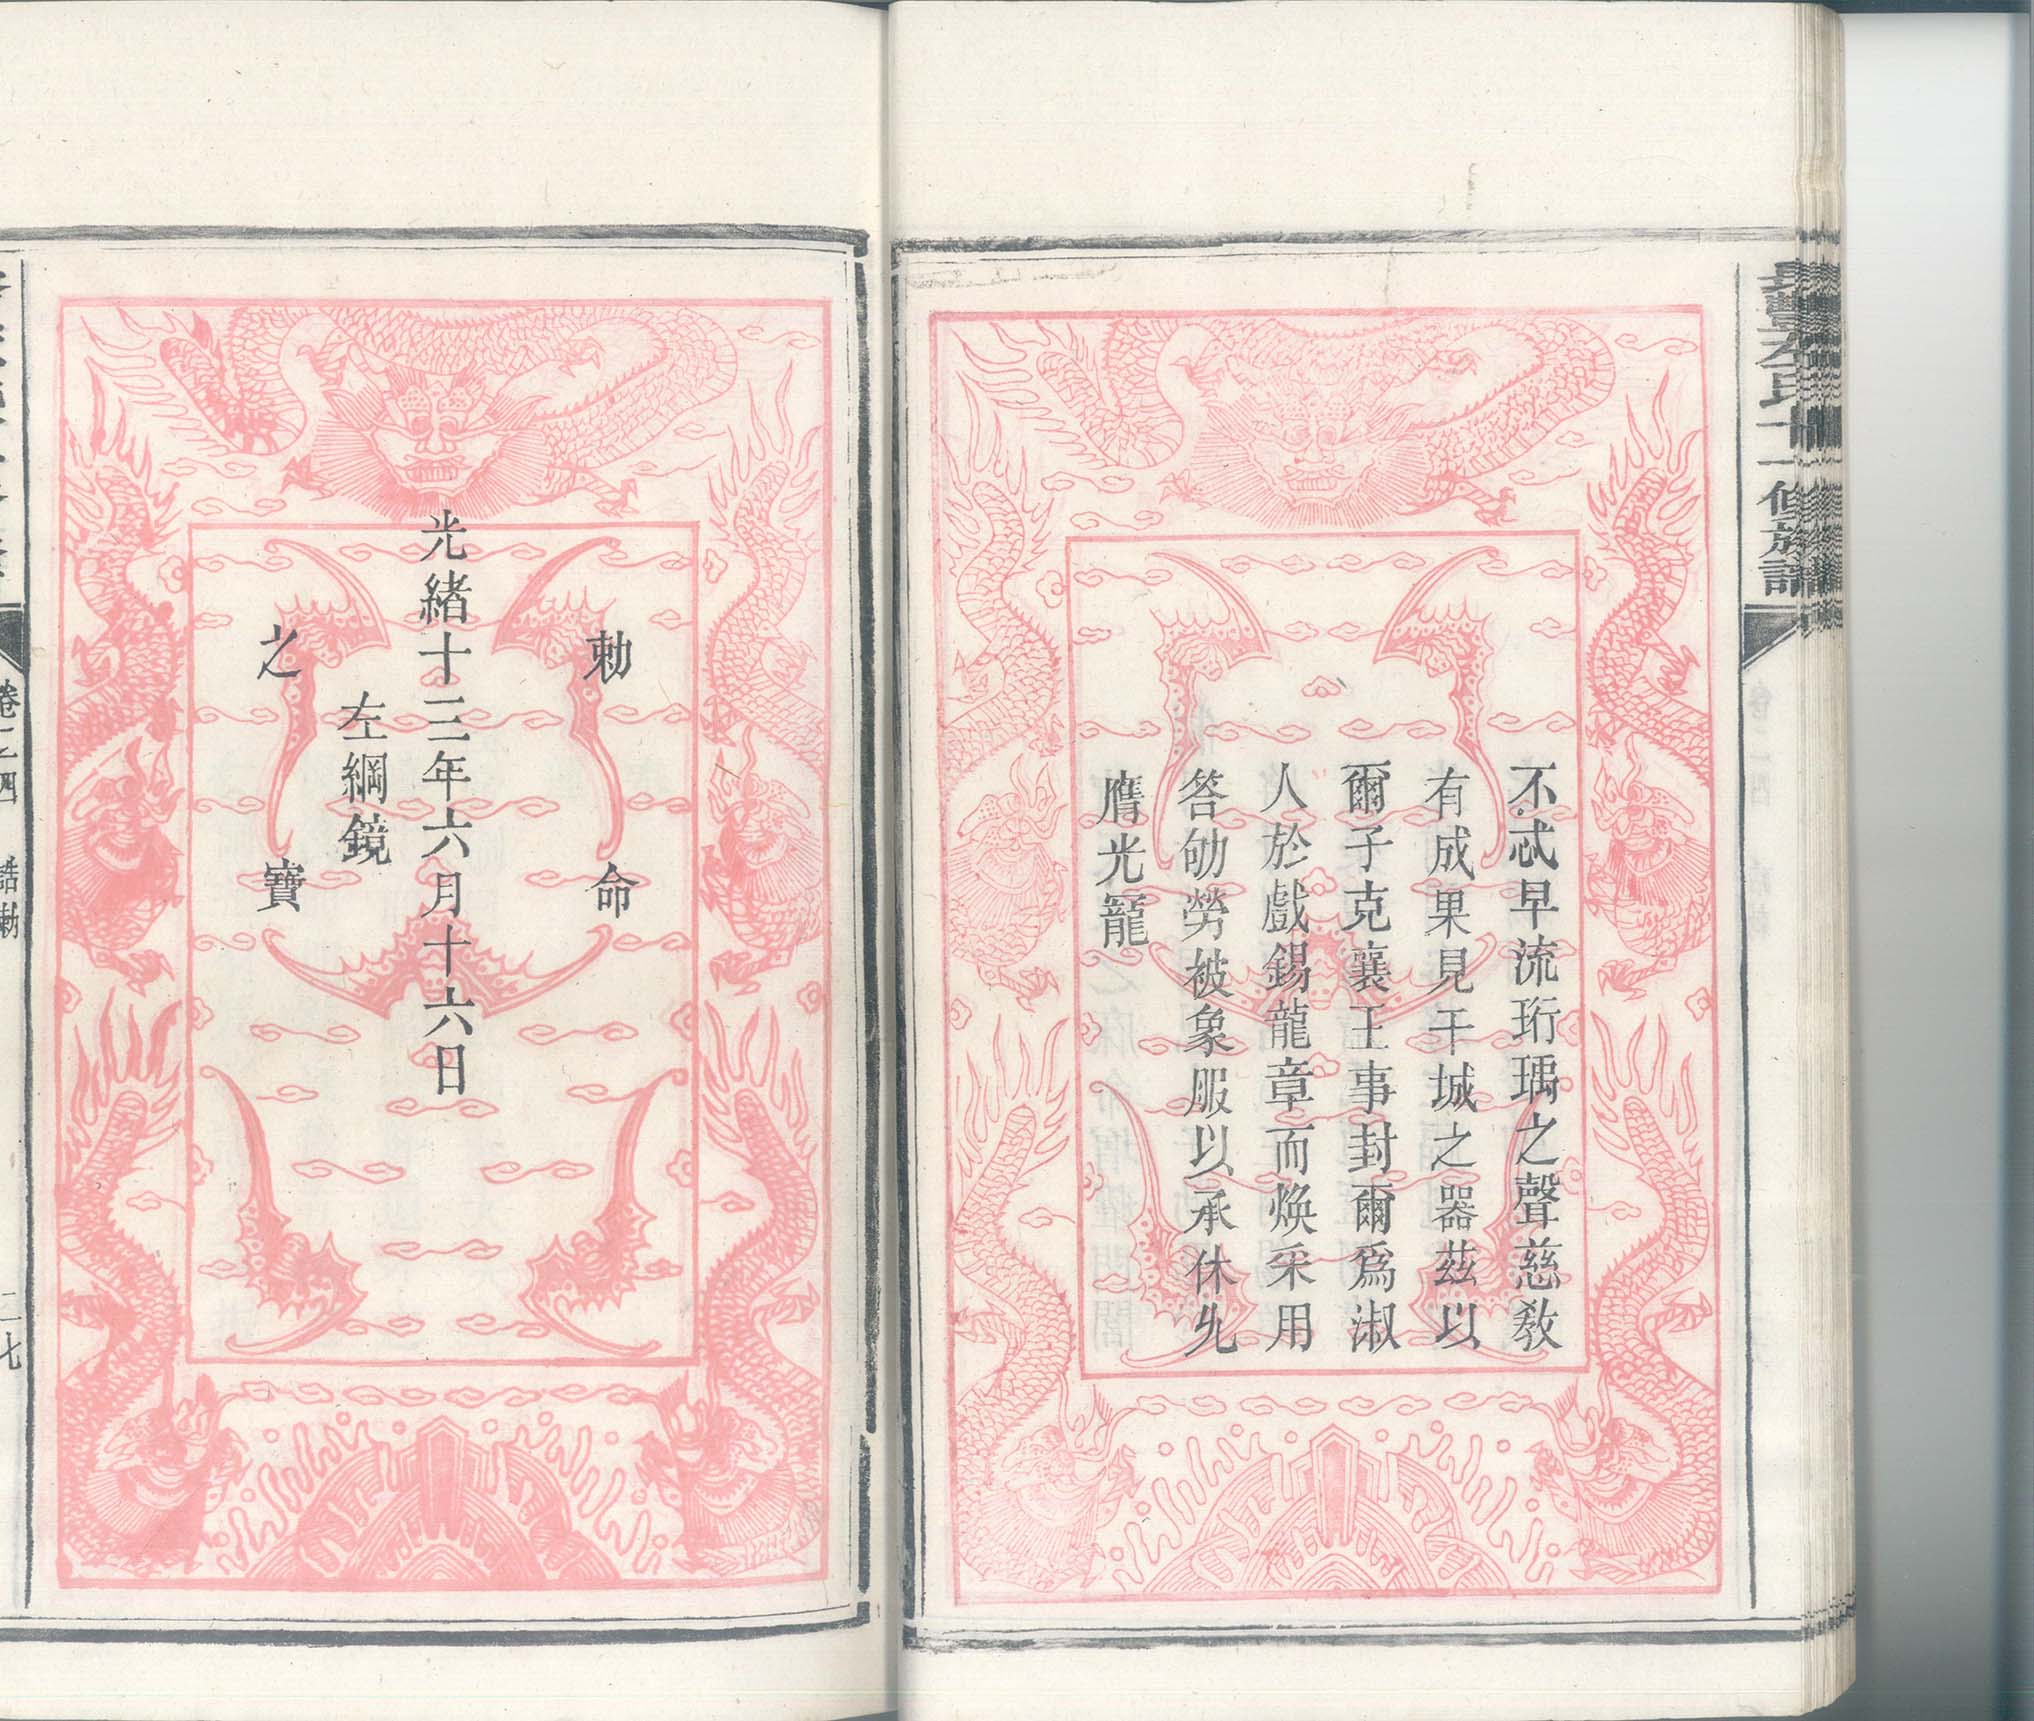 左氏十一修族譜
不忒早流珩瑀之聲慈教
有成果見干城之器茲以
爾子克襄王事封爾爲淑
人於戲錫龍章而煥采用
答劬勞被象服以承休允
膺光寵
勅命
光緒十三年六月十六日
左綱鏡
之寶
卷之四 誥勅 二七